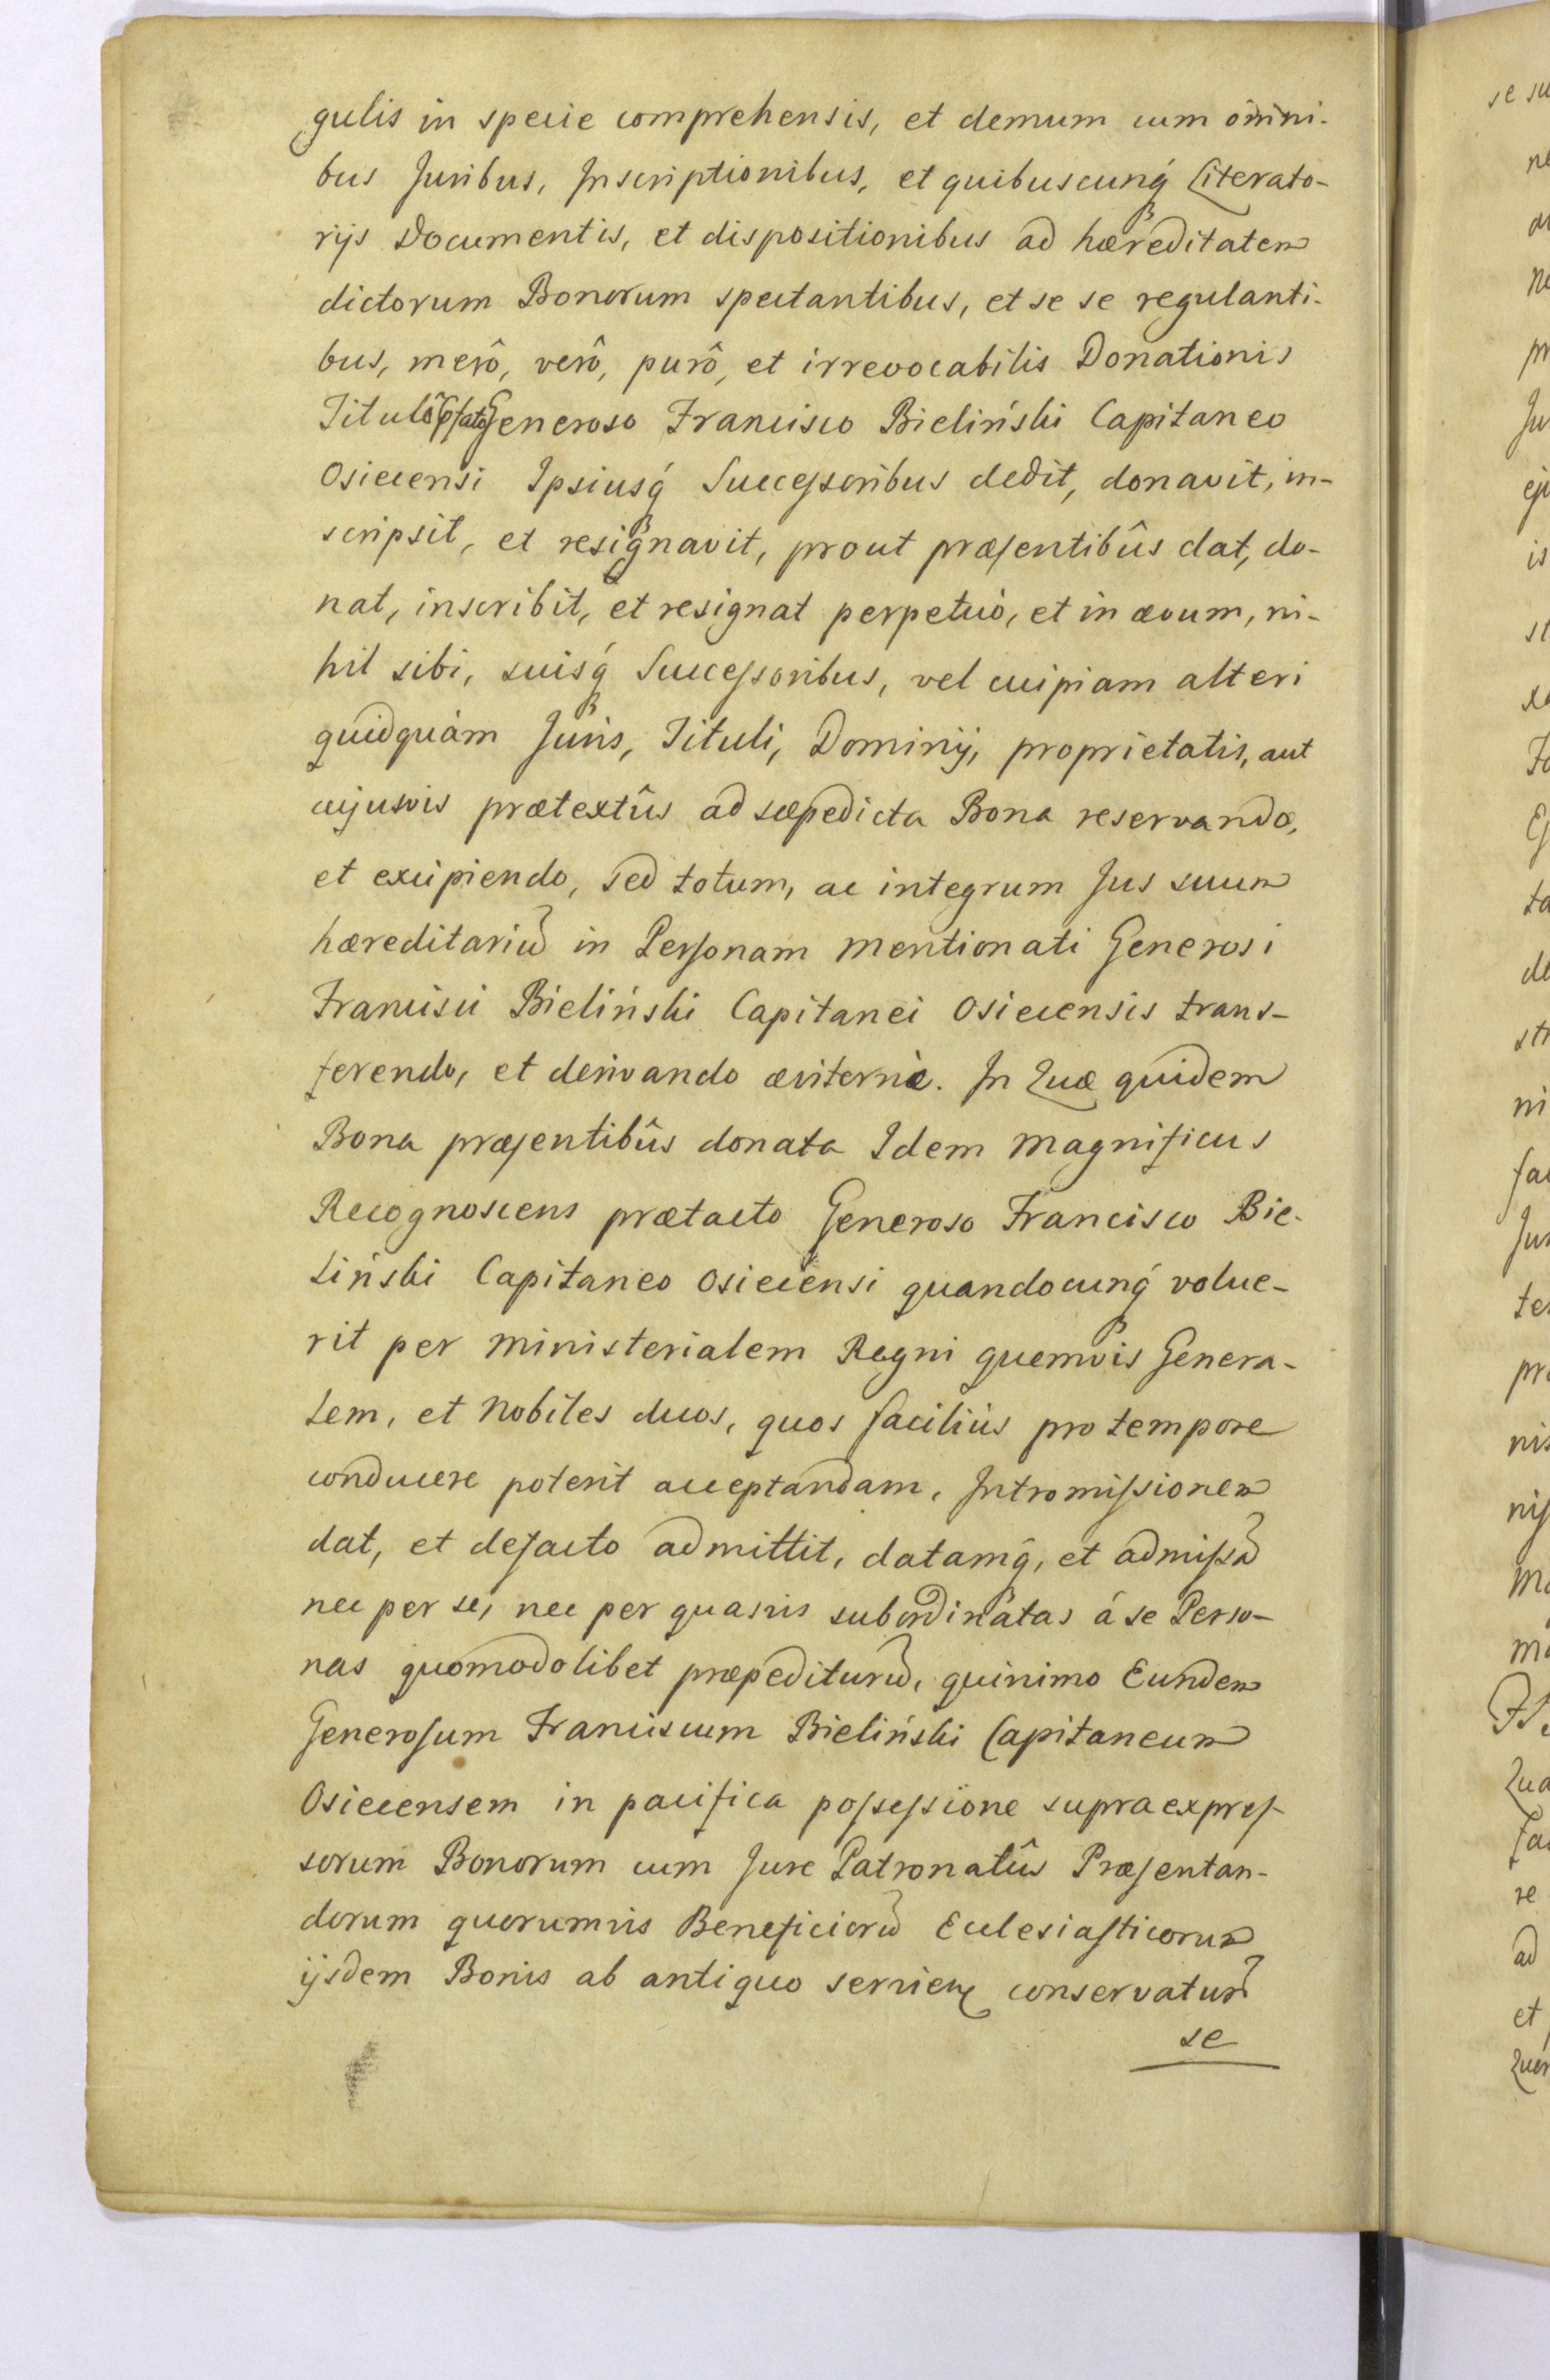 gulis in specie comprehensis, et demum cum om̃ni-
bus Juribus, Inscriptionibus, et quibuscunq́ Literato-
rijs Documentis, et dispositionibus ad hæreditatem
dictorum Bonorum spectantibus, et se se regulanti-
bus, merô, verô, purô, et irrevocabilis Donationis
Titulô Generoso Francisco Bieliński Capitaneo
Osiecensi Ipsiusq́ Succeſsoribus dedit, donavit, in-
scripsit, et resignavit, prout præſentibûs dat, do-
nat, inscribit, et resignat perpetuò, et in ævum, ni-
hil sibi, suisq́ Succeſsoribus, vel cuipiam alteri
quidquàm Juris, Tituli, Dominij, proprietatis, aut
cujusvis prætextûs ad sæpedicta Bona reservando,
et excipiendo, sed totum, ac integrum Jus suum
hæreditariũ in Perſonam mentionati Generosi
Francisci Bieliński Capitanei Osiecensis trans-
ferendo, et derivando æviternè. In Quæ quidem
Bona præſentibûs donata Idem Magnificus
Recognoscens prætacto Generoso Francisco Bie-
liński Capitaneo Osiecensi quandocunq́ volue-
rit per Ministerialem Regni quemvis Genera-
lem, et Nobiles duos, quos faciliùs pro tempore
conducere poterit acceptandam, Intromiſsionem
dat, et defacto admittit, datamq̂, et admiſsã
nec per se, nec per quasvis subordinatas á se Perso-
nas quomodolibet præpediturũ, quinimo Eundem
Generoſum Franciscum Bieliński Capitaneum
Osiecensem in pacifica poſseſsione supraexpreſ-
sorum Bonorum cum Jure Patronatûs Præſentan-
dorum quorumvis Beneficiorũ Eccleſiaſticorum
ijsdem Bonis ab antiquo conservaturũ
se